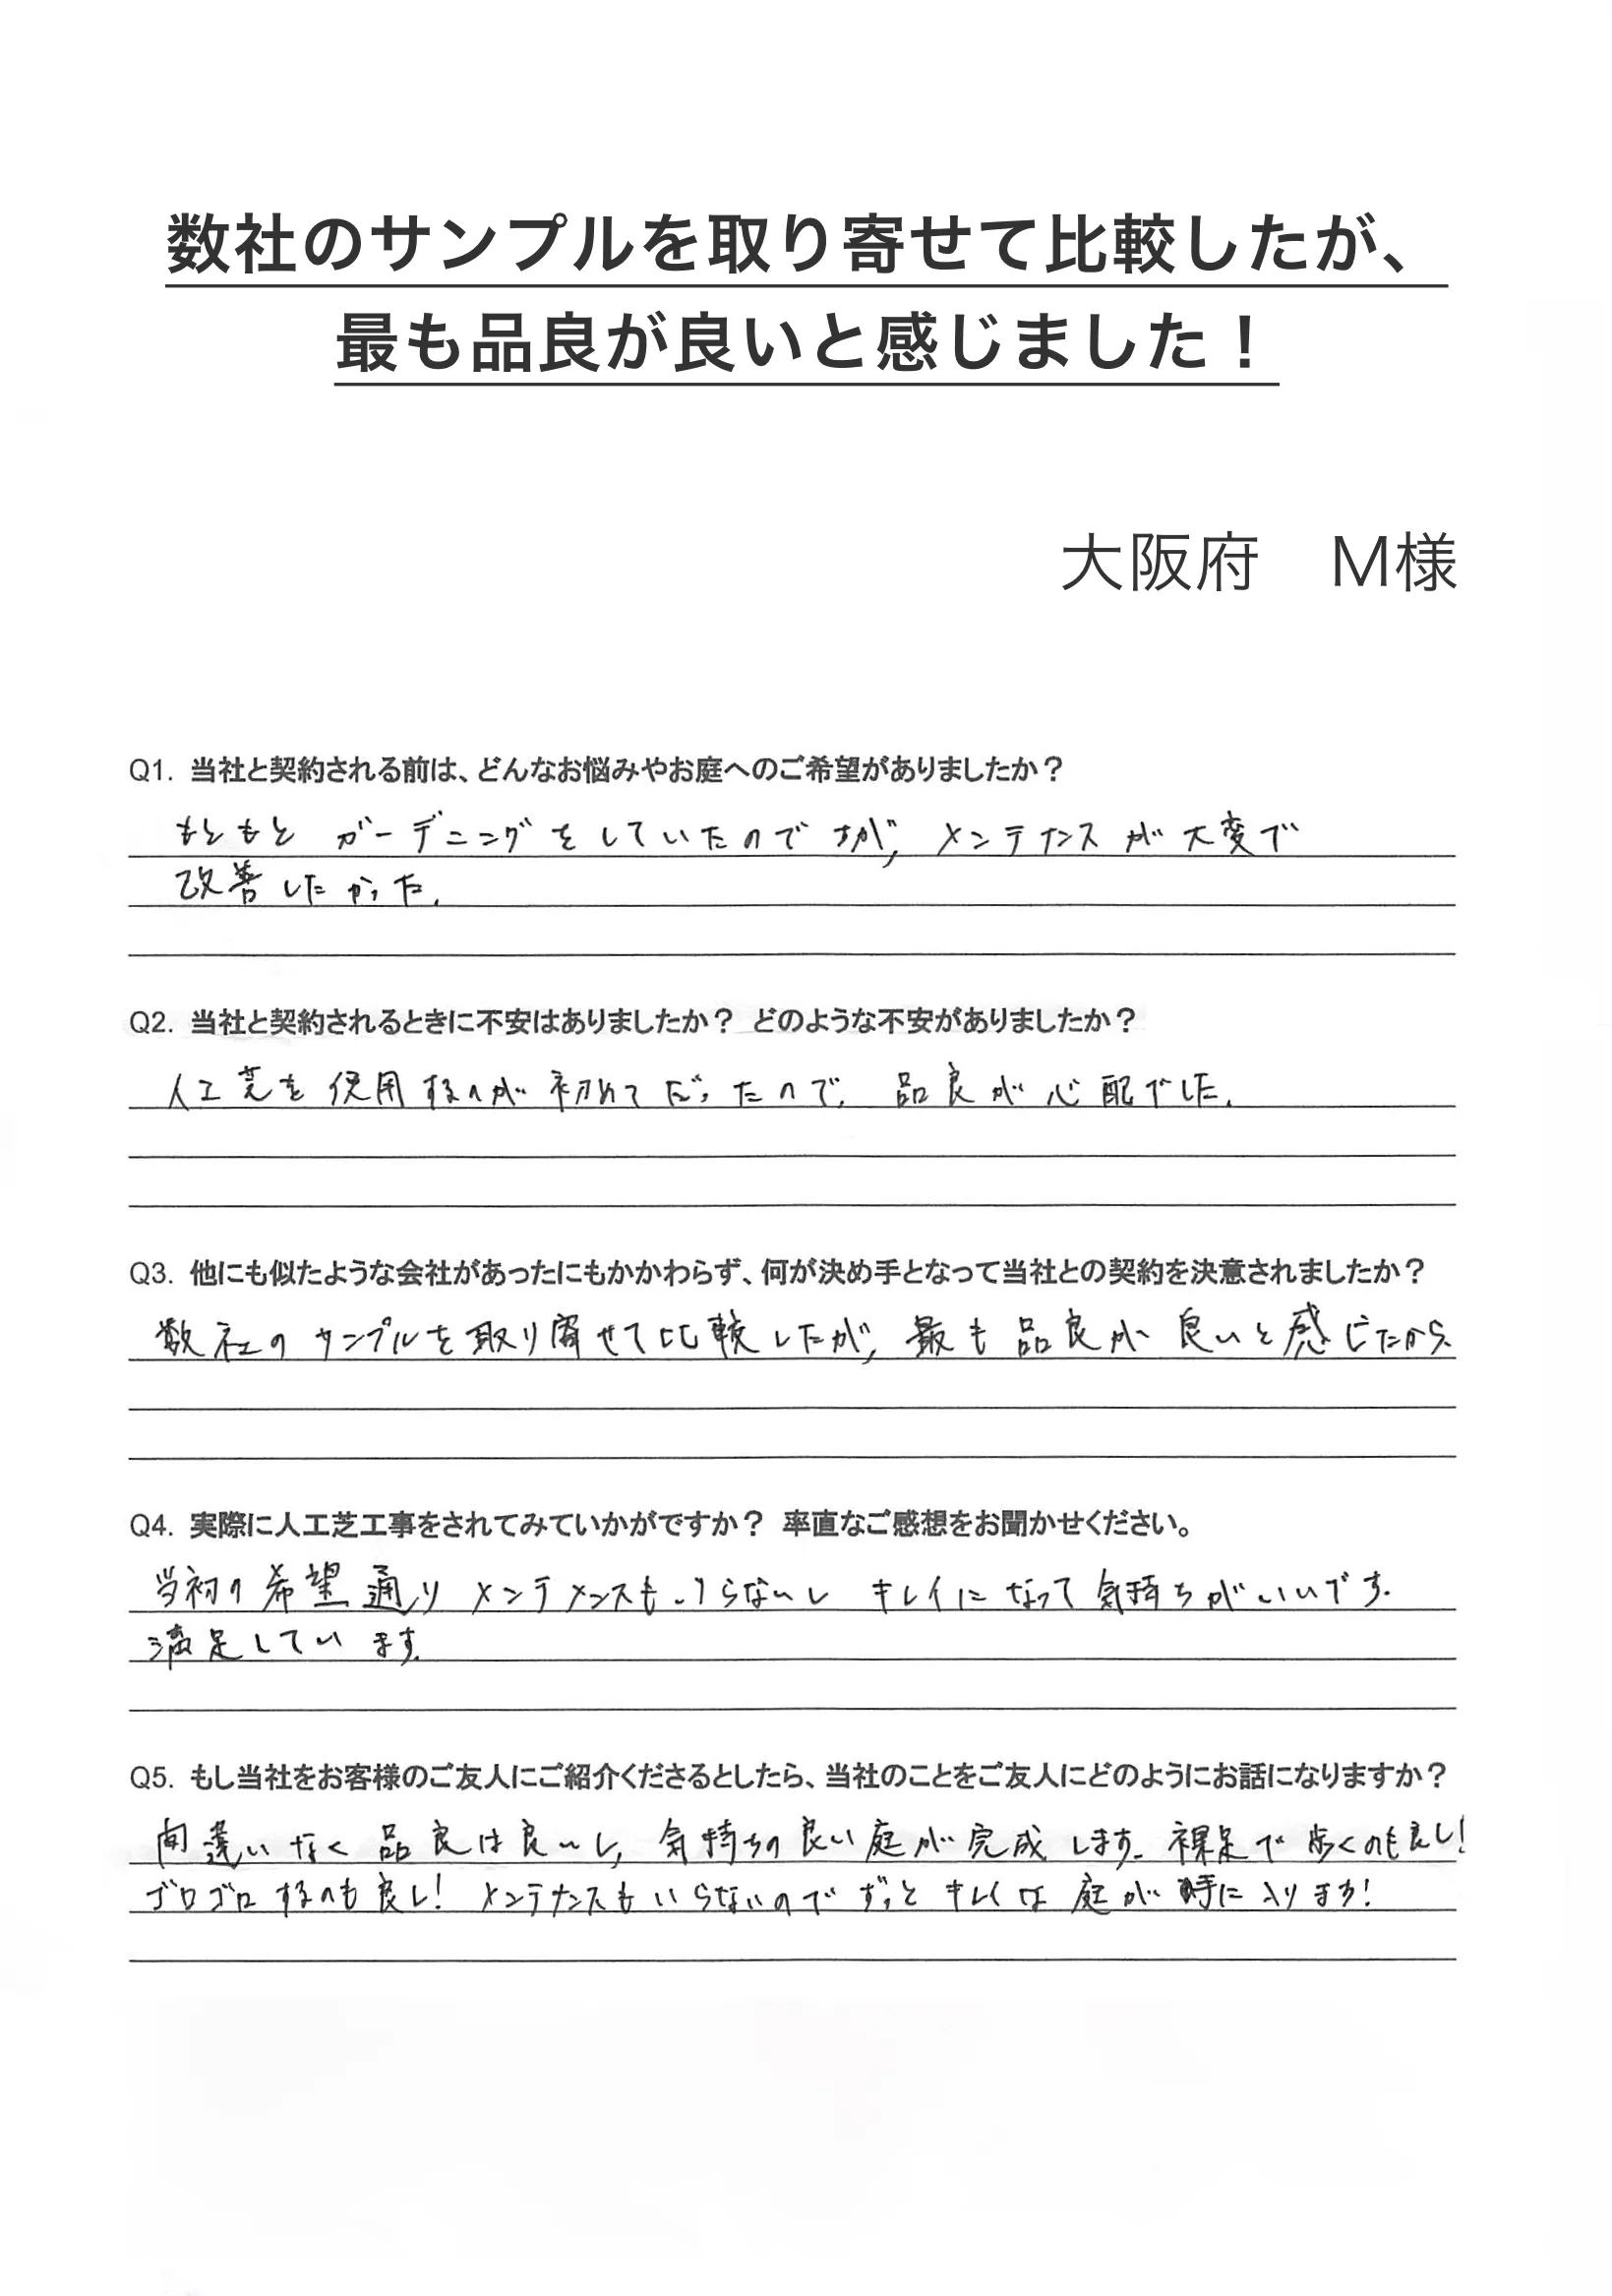 数社のサンプルを取り寄せて比較したが、
最も品良が良いと感じました！
大阪府　M様
Q1. 当社と契約される前は、どんなお悩みやお庭へのご希望がありましたか？
もともと ガーデニングをしていたのですが, メンテナンスが大変で
改善したかった.
Q2. 当社と契約されるときに不安はありましたか？ どのような不安がありましたか？
人工芝を使用するのが初めてだったので, 品良が心配でした.
Q3. 他にも似たような会社があったにもかかわらず、何が決め手となって当社との契約を決意されましたか？
数社のサンプルを取り寄せて比較したが, 最も品良が良いと感じたから、
Q4. 実際に人工芝工事をされてみていかがですか？ 率直なご感想をお聞かせください。
当初の希望通り メンテメンスもいらないし キレイになって気持ちがいいです.
満足しています.
Q5. もし当社をお客様のご友人にご紹介くださるとしたら、当社のことをご友人にどのようにお話になりますか？
間違いなく品良は良いし, 気持ちの良い庭が完成します. 裸足で歩くのも良し!
ゴロゴロするのも良し! メンテナンスもいらないのでずっとキレイな庭が手に入ります!